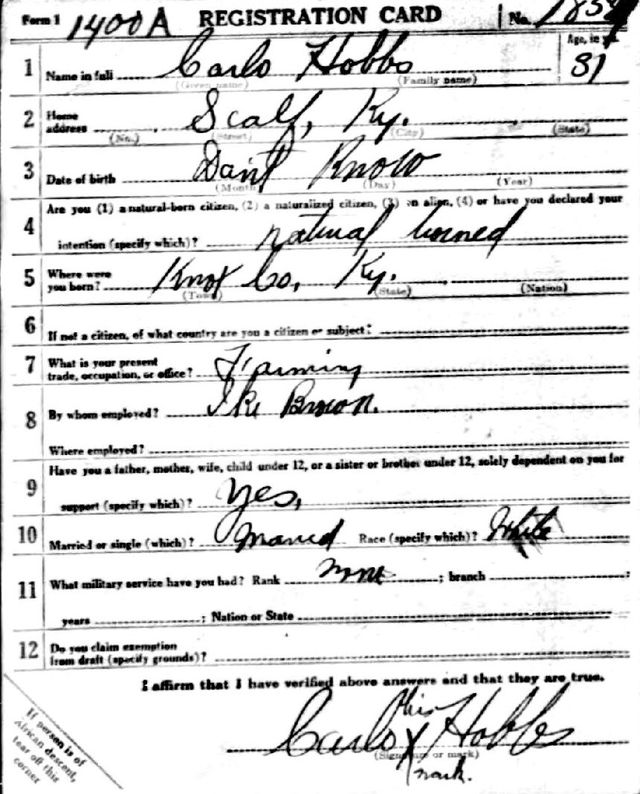 Form 1 1400A REGISTRATION CARD No.
Age, in yrs.
1 Name in full Carlo Hobbs 31
(Given name) (Family name)
2 Home address Scalf, Ky.
(No.) (Street) (City) (State)
3 Date of birth Dan't Know
(Month) (Day) (Year)
4 Are you (1) a natural-born citizen, (2) a naturalized citizen, (3) an alien, (4) or have you declared your
intention (specify which)? natural borned
5 Where were you born? Knox Co, Ky.
(Town) (State) (Nation)
6 If not a citizen, of what country are you a citizen or subject?
7 What is your present trade, occupation, or office? Farming
8 By whom employed? Ike Brown.
Where employed?
9 Have you a father, mother, wife, child under 12, or a sister or brother under 12, solely dependent on you for
support (specify which)? Yes,
10 Married or single (which)? Married Race (specify which)? White
11 What military service have you had? Rank none ; branch ;
years ; Nation or State
12 Do you claim exemption from draft (specify grounds)?
I affirm that I have verified above answers and that they are true.
his
Carlo X Hobbs
(Signature or mark)
mark.
If person is of
African descent,
tear off this
corner